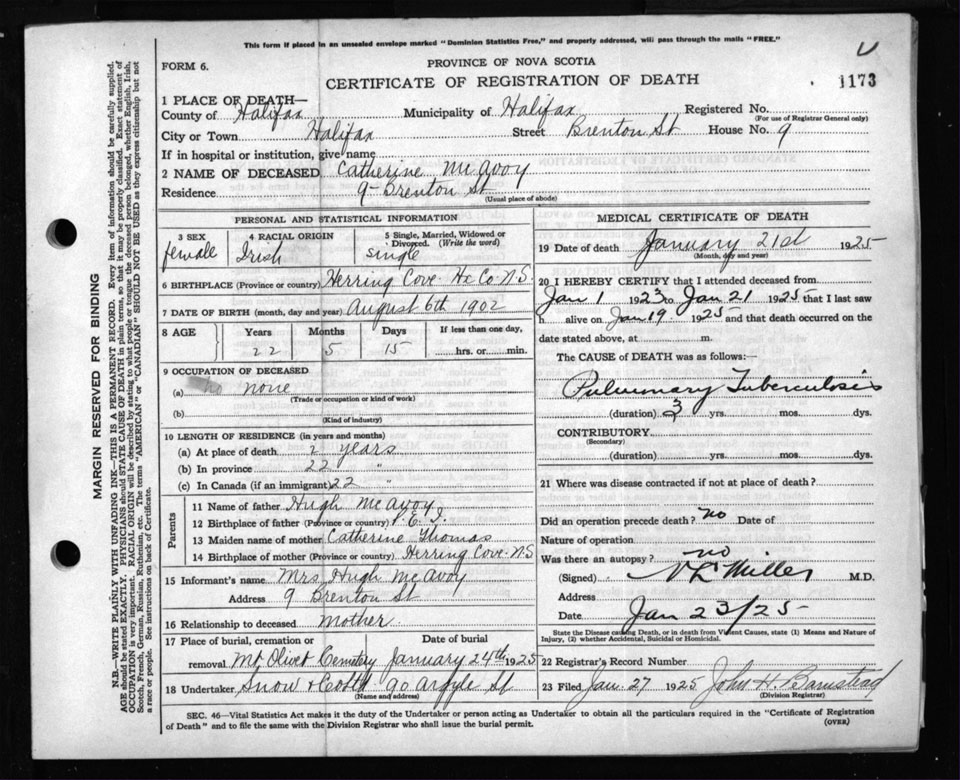 This form if placed in an unsealed envelope marked "Dominion Statistics Free," and properly addressed, will pass through the mails "FREE."
FORM 6.
PROVINCE OF NOVA SCOTIA
CERTIFICATE OF REGISTRATION OF DEATH
1173
1 PLACE OF DEATH—
County of Halifax Municipality of Halifax Registered No.
(For use of Registrar General only)
City or Town Halifax Street Brenton St House No. 9
If in hospital or institution, give name
2 NAME OF DECEASED Catherine McAvoy
Residence 9 Brenton St
(Usual place of abode)
PERSONAL AND STATISTICAL INFORMATION
3 SEX female
4 RACIAL ORIGIN Irish
5 Single, Married, Widowed or Divorced. (Write the word) single
6 BIRTHPLACE (Province or country) Herring Cove Hx Co N.S.
7 DATE OF BIRTH (month, day and year) August 6th 1902
8 AGE Years Months Days If less than one day,
22 5 15 ......hrs. or ......min.
9 OCCUPATION OF DECEASED
(a) no none
(Trade or occupation or kind of work)
(b)
(Kind of industry)
10 LENGTH OF RESIDENCE (in years and months)
(a) At place of death 2 years
(b) In province 22 "
(c) In Canada (if an immigrant) 22 "
Parents
11 Name of father Hugh McAvoy
12 Birthplace of father (Province or country) P.E.I.
13 Maiden name of mother Catherine Thomas
14 Birthplace of mother (Province or country) Herring Cove N.S
15 Informant's name Mrs Hugh McAvoy
Address 9 Brenton St
16 Relationship to deceased mother
17 Place of burial, cremation or removal Date of burial
Mt Olivet Cemetery January 24th 1925
18 Undertaker Snow & Co Ltd 90 Argyle St
(Name and address)
MEDICAL CERTIFICATE OF DEATH
19 Date of death January 21st 1925
(Month, day and year)
20 I HEREBY CERTIFY that I attended deceased from
Jan 1 1923 to Jan 21 1925 that I last saw
h...... alive on Jan 19 1925 and that death occurred on the
date stated above, at ............ m.
The CAUSE of DEATH was as follows:—
Pulmonary Tuberculosis
(duration) 3 yrs. mos. dys.
CONTRIBUTORY
(Secondary)
(duration) yrs. mos. dys.
21 Where was disease contracted if not at place of death?
Did an operation precede death? no Date of
Nature of operation
Was there an autopsy? no
(Signed) Miller M.D.
Address
Date Jan 23/25
State the Disease causing Death, or in death from Violent Causes, state (1) Means and Nature of
Injury, (2) whether Accidental, Suicidal or Homicidal.
22 Registrar's Record Number
23 Filed Jan. 27 1925 John H. Barnstead
(Division Registrar)
SEC. 46—Vital Statistics Act makes it the duty of the Undertaker or person acting as Undertaker to obtain all the particulars required in the "Certificate of Registration
of Death" and to file the same with the Division Registrar who shall issue the burial permit.
(OVER)
MARGIN RESERVED FOR BINDING
N.B.—WRITE PLAINLY WITH UNFADING INK—THIS IS A PERMANENT RECORD. Every item of information should be carefully supplied.
AGE should be stated EXACTLY. PHYSICIANS should STATE CAUSE OF DEATH in plain terms, so that it may be properly classified. Exact statement of
OCCUPATION is very important. RACIAL ORIGIN will be described by stating to what people or tongue the deceased person belonged, whether English, Irish,
Scotch, French, German, Russian, Ruthenian, etc. The terms "AMERICAN" or "CANADIAN" SHOULD NOT BE USED as they express citizenship but not
a race or people. See instructions on back of Certificate.